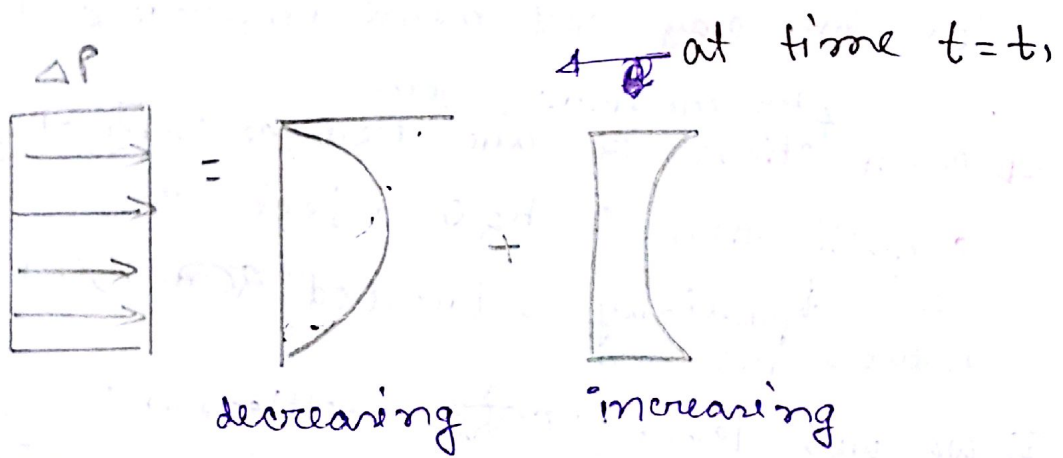 at time t = t₁
ΔP
=
+
decreasing
increasing